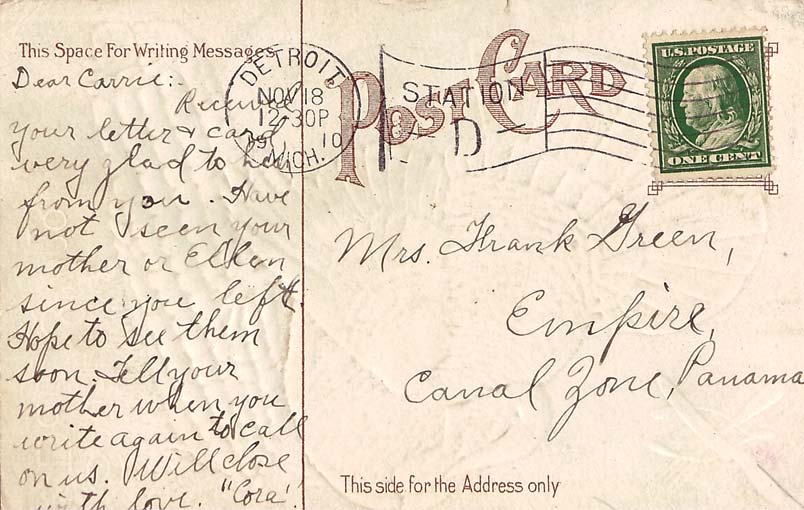 This Space For Writing Messages
Dear Carrie:-
Received
your letter & card
very glad to hear
from you. Have
not seen your
mother or Ellen
since you left
Hope to see them
soon. Tell your
mother when you
write again to call
on us. Will close
with love. "Cora".
DETROIT
NOV 18
12-30P
1910
MICH.
STATION
D
POST CARD
U.S. POSTAGE
ONE CENT
Mrs. Frank Green,
Empire,
Canal Zone, Panama
This side for the Address only